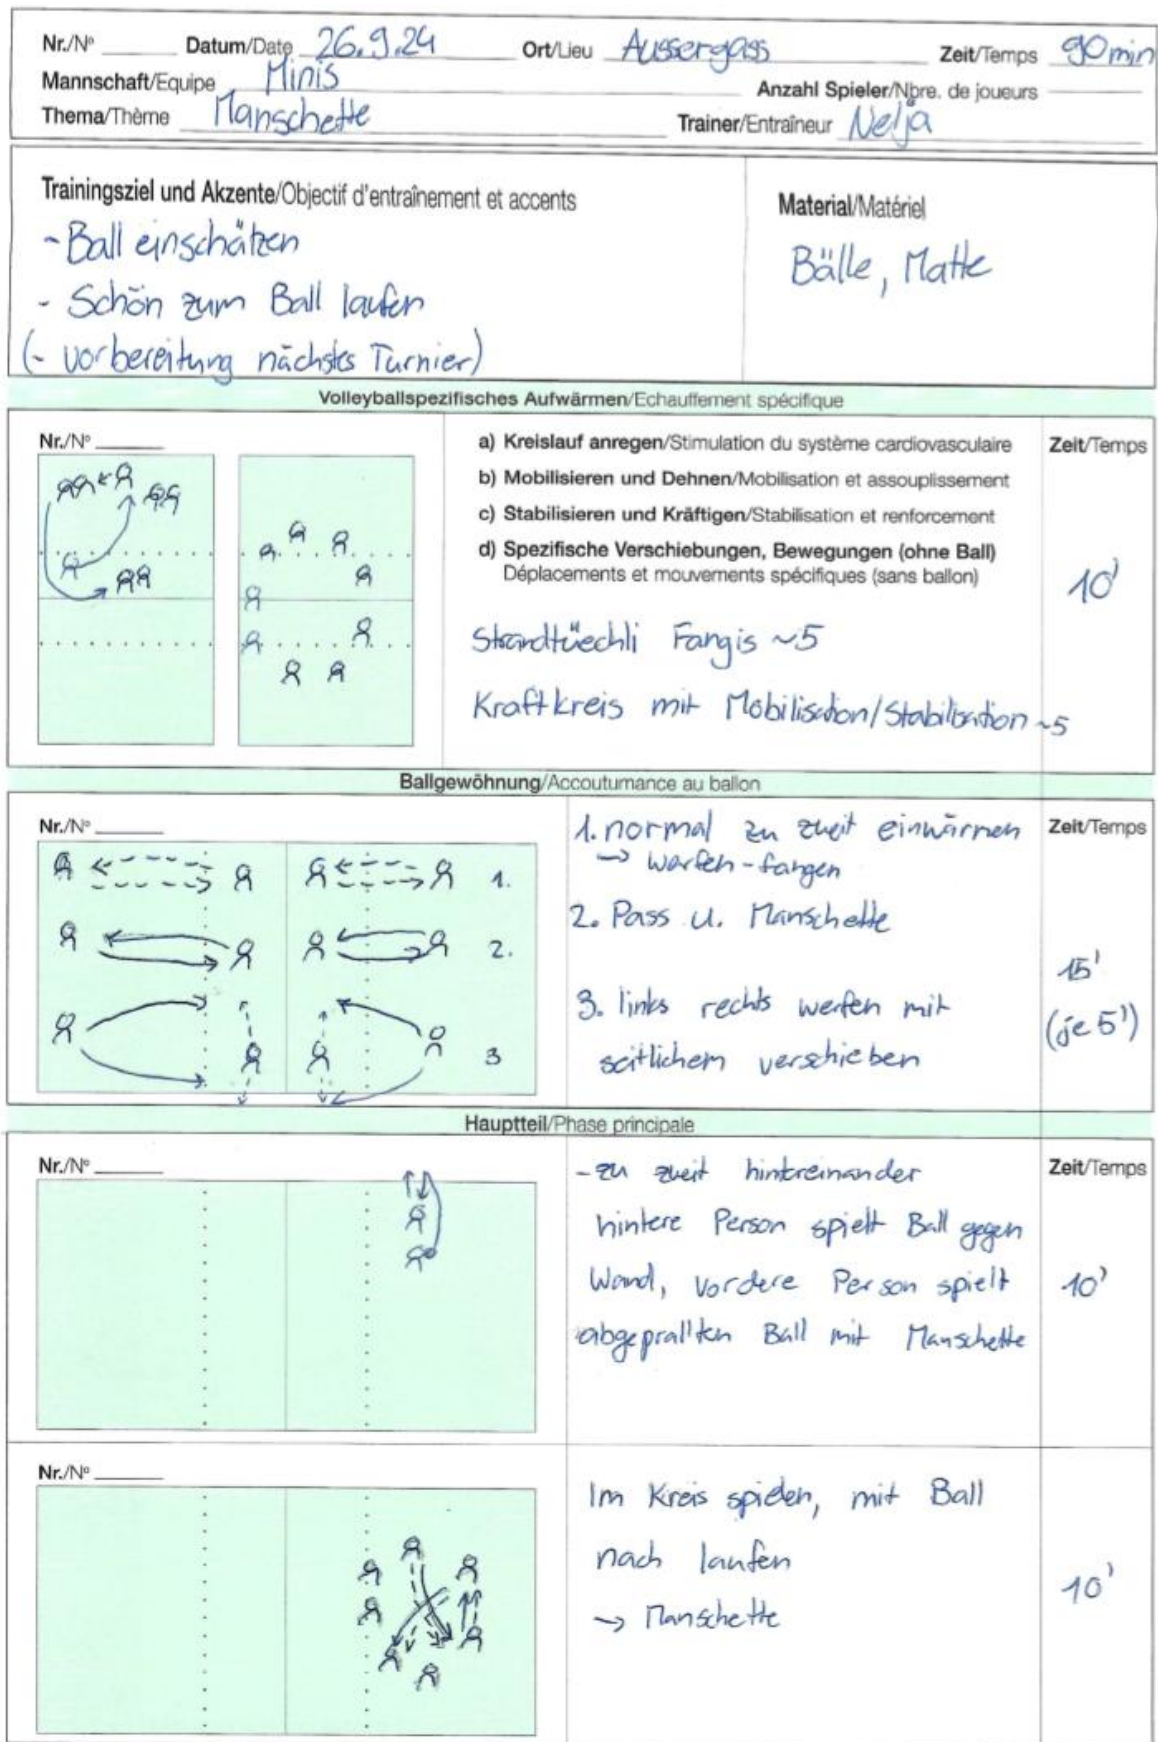 Nr./Nº Datum/Date 26.9.24 Ort/Lieu Aussergass Zeit/Temps 90min
Mannschaft/Equipe Minis Anzahl Spieler/Nbre. de joueurs
Thema/Thème Manschette Trainer/Entraîneur Nelja
Trainingsziel und Akzente/Objectif d'entraînement et accents
- Ball einschätzen
- Schön zum Ball laufen
(- vorbereitung nächstes Turnier)
Material/Matériel
Bälle, Matte
Volleyballspezifisches Aufwärmen/Echauffement spécifique
Nr./Nº
a) Kreislauf anregen/Stimulation du système cardiovasculaire
b) Mobilisieren und Dehnen/Mobilisation et assouplissement
c) Stabilisieren und Kräftigen/Stabilisation et renforcement
d) Spezifische Verschiebungen, Bewegungen (ohne Ball)
Déplacements et mouvements spécifiques (sans ballon)
Strandtüechli Fangis ~5
Kraftkreis mit Mobilisation/Stabilisation ~5
Zeit/Temps
10'
Ballgewöhnung/Accoutumance au ballon
Nr./Nº
1.
2.
3
1. normal zu zweit einwärmen
→ werfen-fangen
2. Pass u. Manschette
3. links rechts werfen mit
seitlichem verschieben
Zeit/Temps
15'
(je 5')
Hauptteil/Phase principale
Nr./Nº
- zu zweit hintereinander
hintere Person spielt Ball gegen
Wand, vordere Person spielt
abgeprallten Ball mit Manschette
Zeit/Temps
10'
Nr./Nº
Im Kreis spielen, mit Ball
nach laufen
→ Manschette
10'